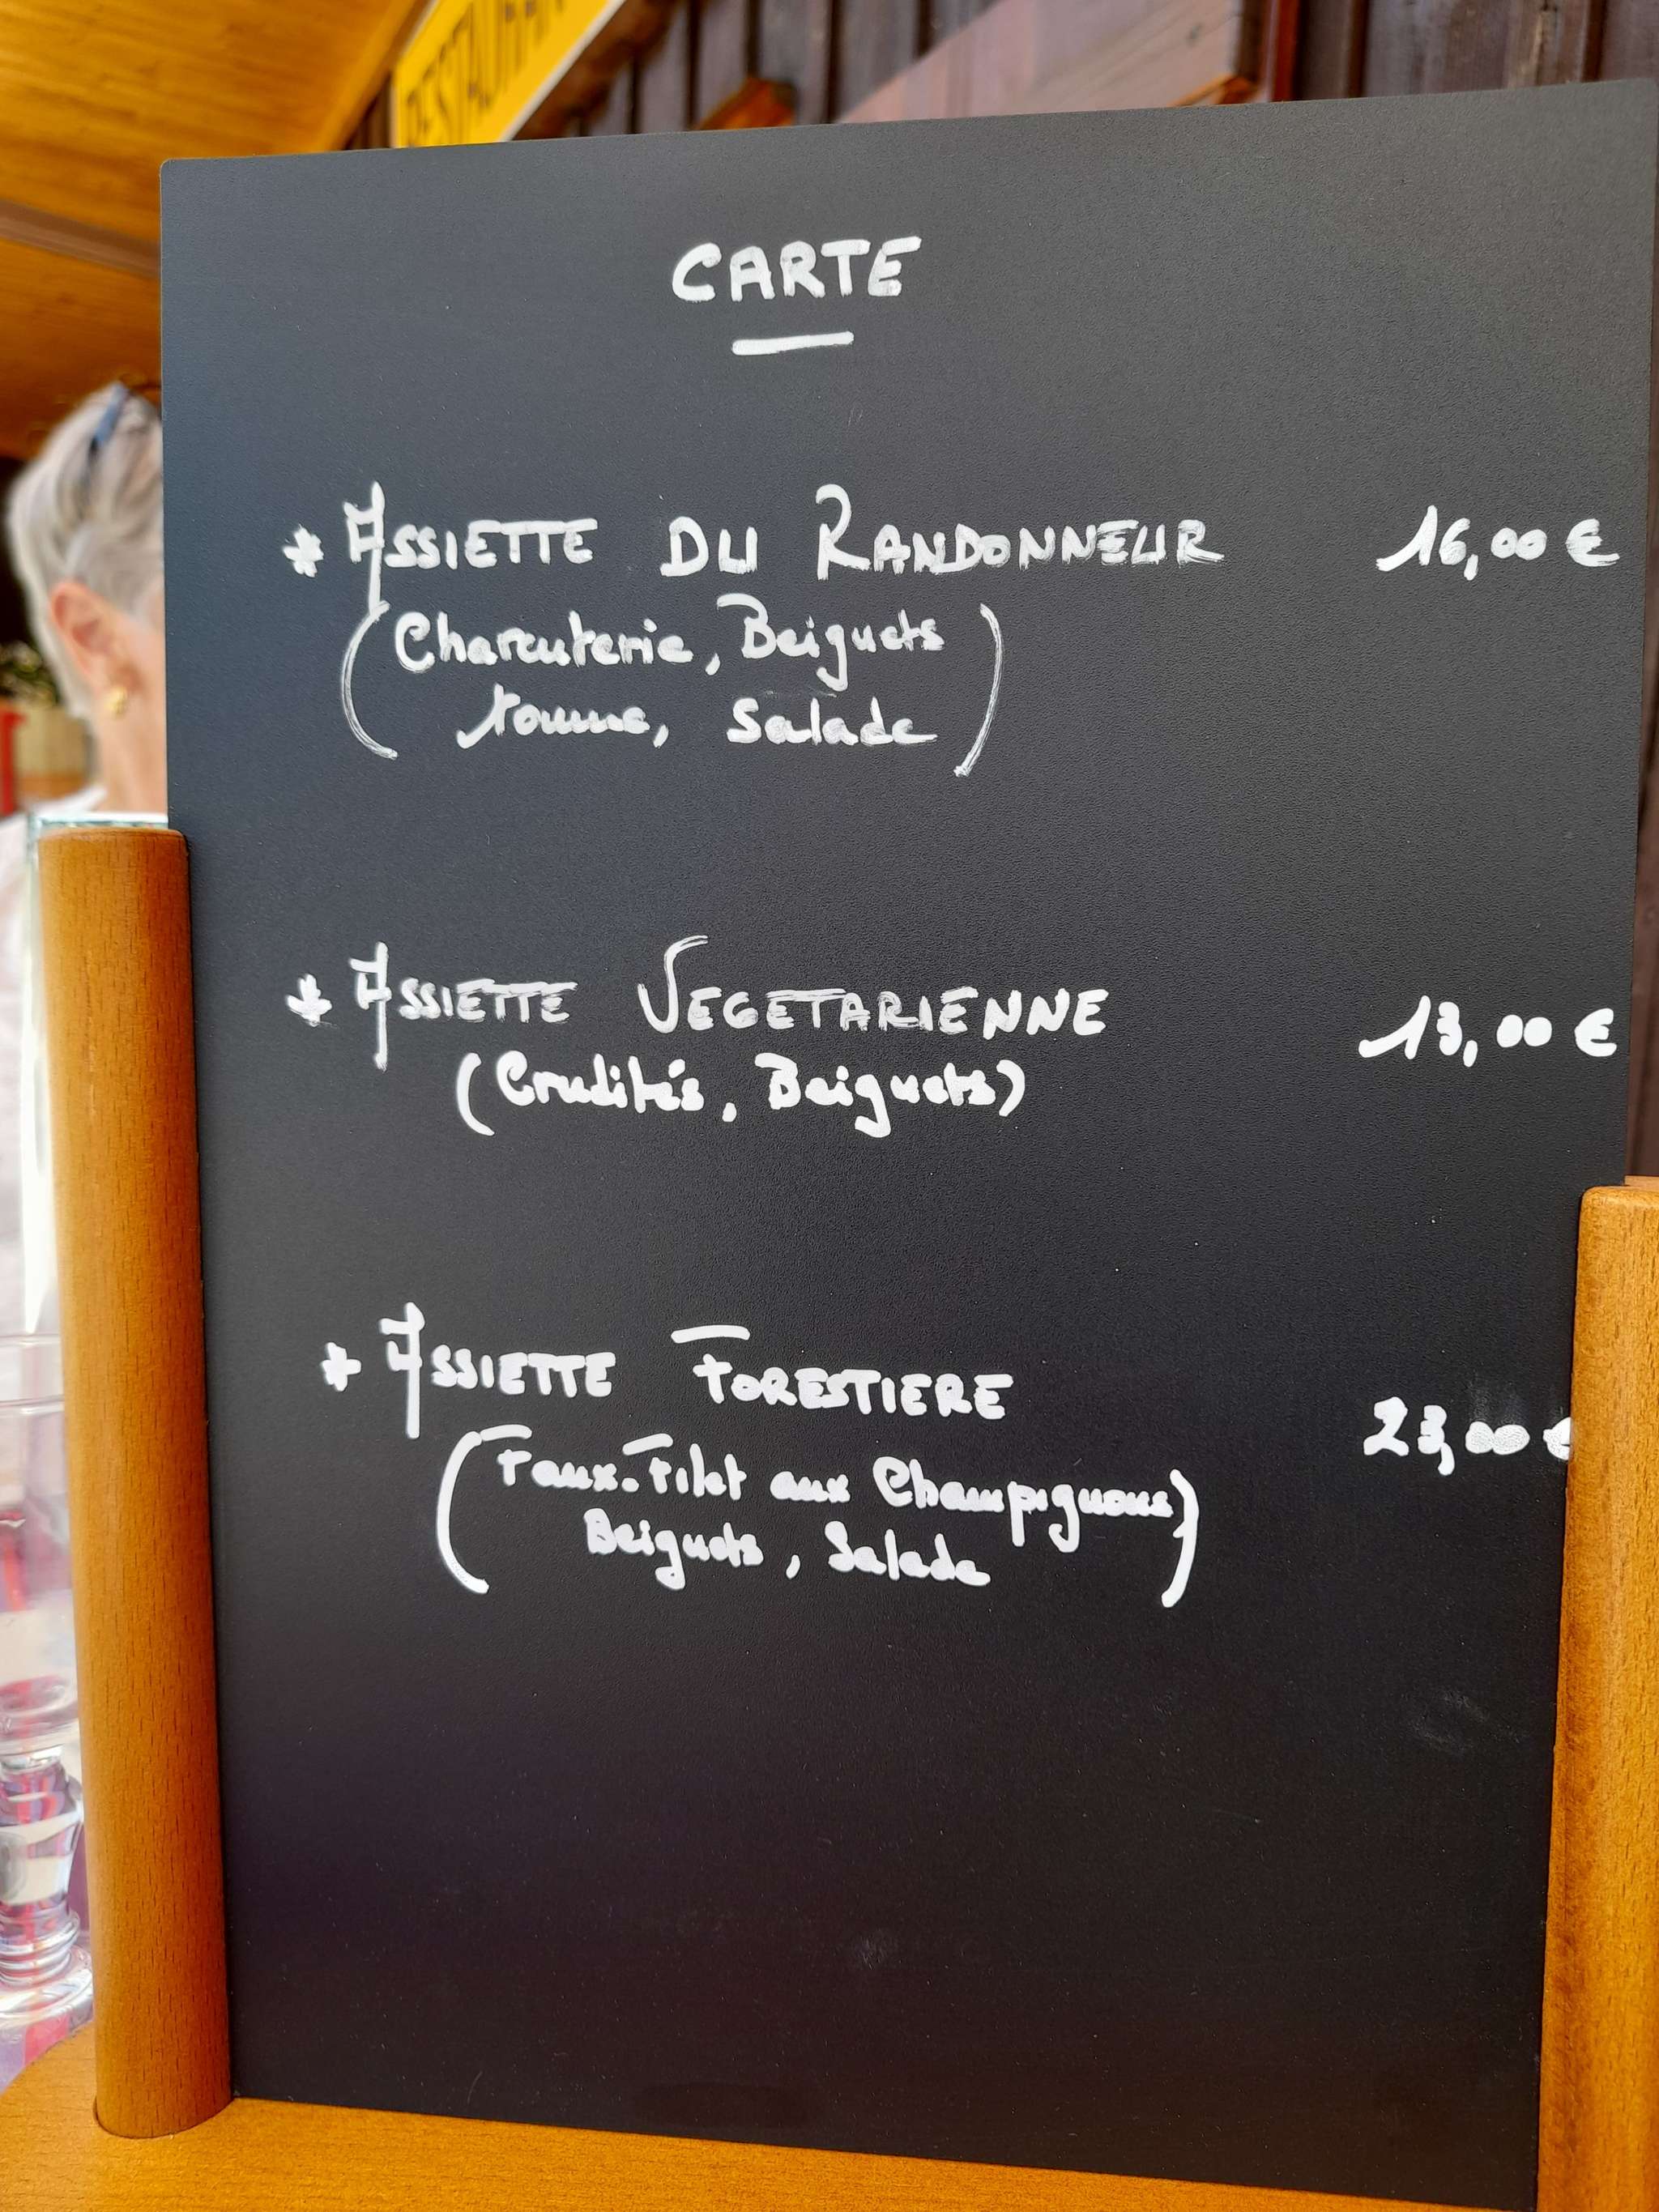 RESTAURAN
CARTE
* ASSIETTE DU RANDONNEUR 16,00 €
(Charcuterie, Beignets
tomme, Salade)
* ASSIETTE VEGETARIENNE 13,00 €
(Crudités, Beignets)
* ASSIETTE FORESTIERE 23,00 €
(Faux-Filet aux Champignons
Beignets, Salade)